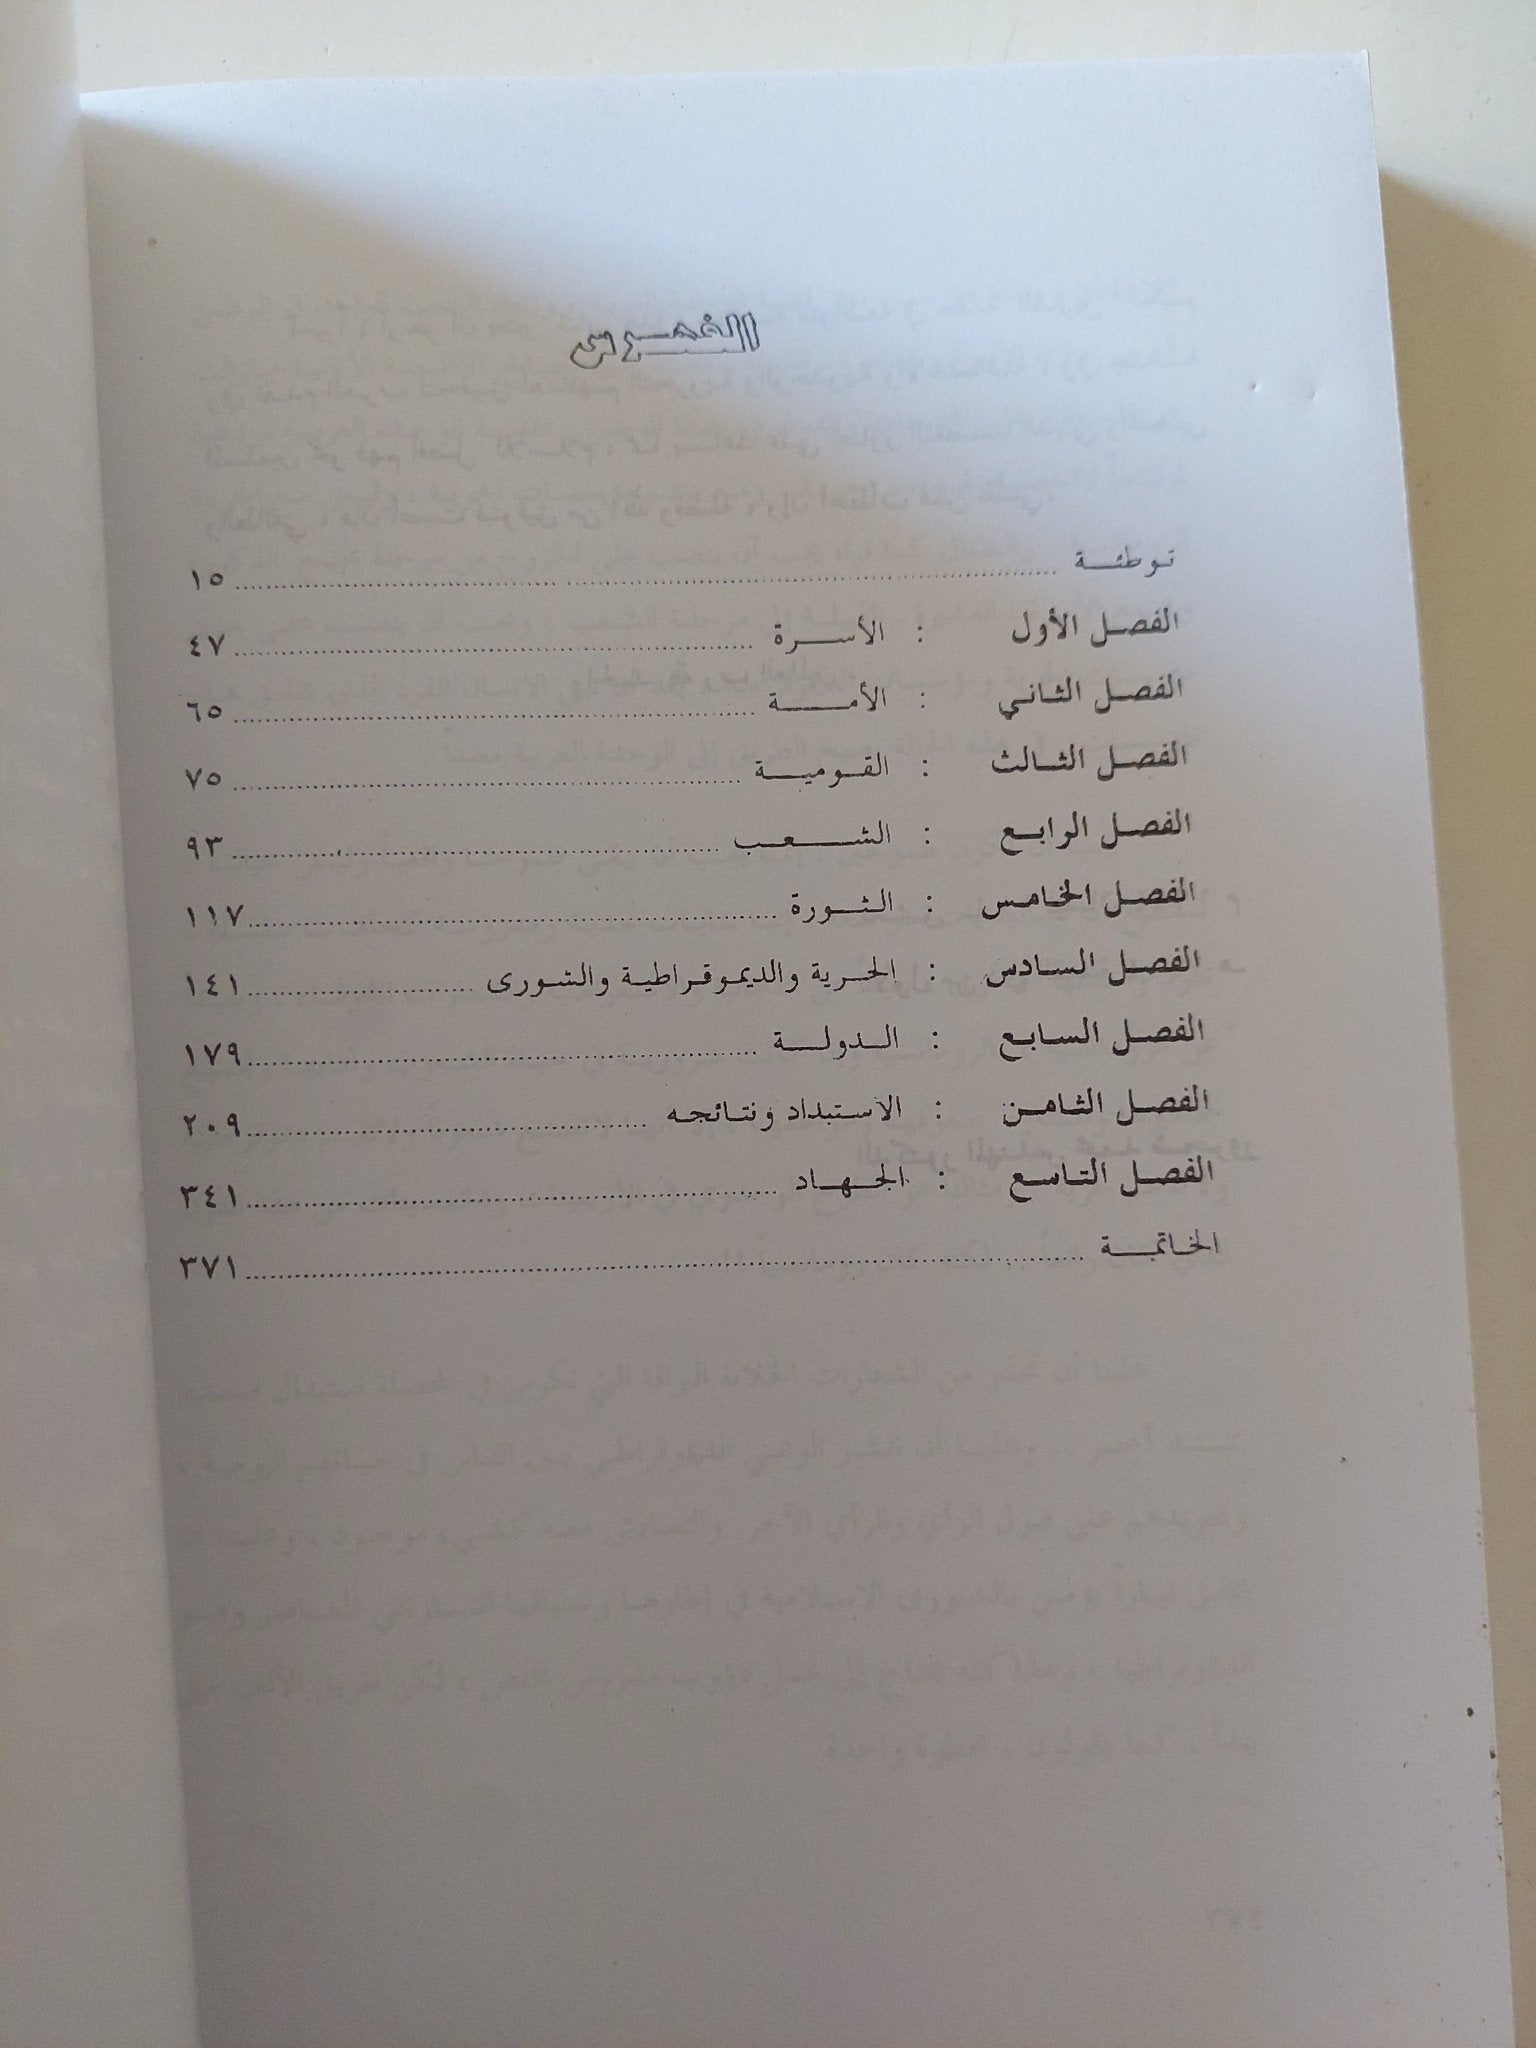 الفهرس
توطئة ........................ ١٥
الفصل الأول : الأسرة ........................ ٤٧
الفصل الثاني : الأمة ........................ ٦٥
الفصل الثالث : القومية ........................ ٧٥
الفصل الرابع : الشعب ........................ ٩٣
الفصل الخامس : الثورة ........................ ١١٧
الفصل السادس : الحرية والديموقراطية والشورى ........................ ١٤١
الفصل السابع : الدولة ........................ ١٧٩
الفصل الثامن : الاستبداد ونتائجه ........................ ٢٠٩
الفصل التاسع : الجهاد ........................ ٣٤١
الخاتمة ........................ ٣٧١